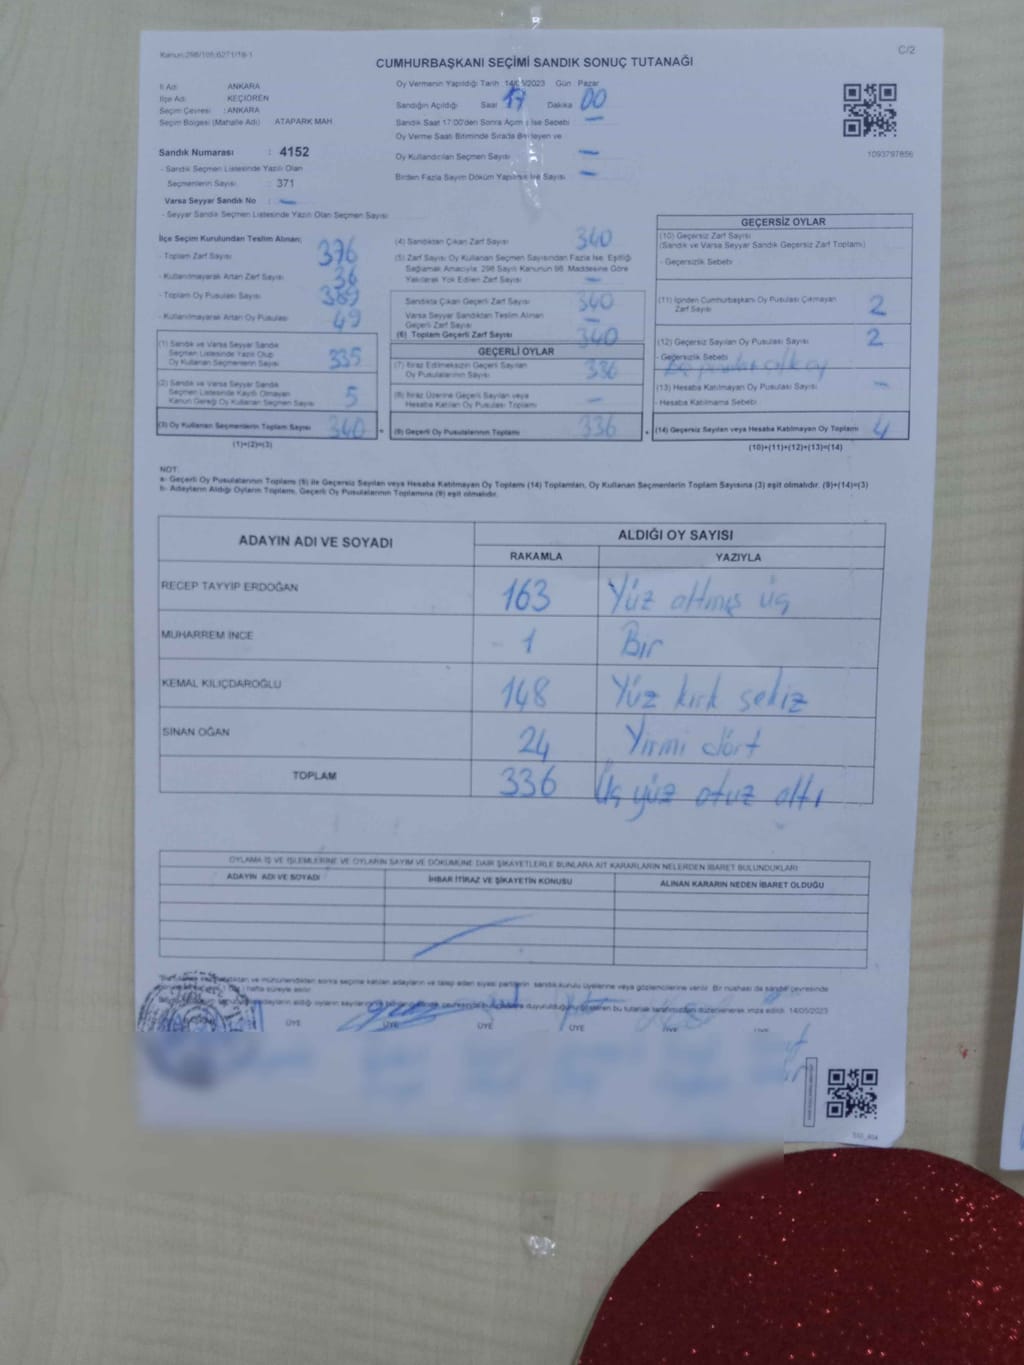 Kanun:298/105;6271/18-1
C/2
CUMHURBAŞKANI SEÇİMİ SANDIK SONUÇ TUTANAĞI
İl Adı : ANKARA
İlçe Adı : KEÇİÖREN
Seçim Çevresi : ANKARA
Seçim Bölgesi (Mahalle Adı) ATAPARK MAH
Sandık Numarası : 4152
- Sandık Seçmen Listesinde Yazılı Olan
Seçmenlerin Sayısı : 371
Varsa Seyyar Sandık No : -
- Seyyar Sandık Seçmen Listesinde Yazılı Olan Seçmen Sayısı
Oy Vermenin Yapıldığı Tarih 14/05/2023 Gün : Pazar
Sandığın Açıldığı Saat 17 Dakika 00
Sandık Saat 17:00'den Sonra Açılmış İse Sebebi -
Oy Verme Saati Bitiminde Sırada Bekleyen ve
Oy Kullandırılan Seçmen Sayısı -
Birden Fazla Sayım Döküm Yapılmış İse Sayısı -
1093797856
İlçe Seçim Kurulundan Teslim Alınan;
- Toplam Zarf Sayısı 376
- Kullanılmayarak Artan Zarf Sayısı 36
- Toplam Oy Pusulası Sayısı 389
- Kullanılmayarak Artan Oy Pusulası 49
(1) Sandık ve Varsa Seyyar Sandık
Seçmen Listesinde Yazılı Olup
Oy Kullanan Seçmenlerin Sayısı 335
(2) Sandık ve Varsa Seyyar Sandık
Seçmen Listesinde Kayıtlı Olmayan
Kanun Gereği Oy Kullanan Seçmen Sayısı 5
(3) Oy Kullanan Seçmenlerin Toplam Sayısı 340
(1)+(2)=(3)
(4) Sandıktan Çıkan Zarf Sayısı 340
(5) Zarf Sayısı Oy Kullanan Seçmen Sayısından Fazla İse, Eşitliği
Sağlamak Amacıyla, 298 Sayılı Kanunun 98. Maddesine Göre
Yakılarak Yok Edilen Zarf Sayısı -
Sandıkta Çıkan Geçerli Zarf Sayısı 340
Varsa Seyyar Sandıktan Teslim Alınan
Geçerli Zarf Sayısı -
(6) Toplam Geçerli Zarf Sayısı 340
GEÇERLİ OYLAR
(7) İtiraz Edilmeksizin Geçerli Sayılan
Oy Pusulalarının Sayısı 336
(8) İtiraz Üzerine Geçerli Sayılan veya
Hesaba Katılan Oy Pusulası Toplamı -
(9) Geçerli Oy Pusulalarının Toplamı 336
GEÇERSİZ OYLAR
(10) Geçersiz Zarf Sayısı
(Sandık ve Varsa Seyyar Sandık Geçersiz Zarf Toplamı)
- Geçersizlik Sebebi
(11) İçinden Cumhurbaşkanı Oy Pusulası Çıkmayan
Zarf Sayısı 2
(12) Geçersiz Sayılan Oy Pusulası Sayısı 2
- Geçersizlik Sebebi
(13) Hesaba Katılmayan Oy Pusulası Sayısı -
- Hesaba Katılmama Sebebi
(14) Geçersiz Sayılan veya Hesaba Katılmayan Oy Toplamı 4
(10)+(11)+(12)+(13)=(14)
NOT:
a- Geçerli Oy Pusulalarının Toplamı (9) ile Geçersiz Sayılan veya Hesaba Katılmayan Oy Toplamı (14) Toplamları, Oy Kullanan Seçmenlerin Toplam Sayısına (3) eşit olmalıdır. (9)+(14)=(3)
b- Adayların Aldığı Oyların Toplamı, Geçerli Oy Pusulalarının Toplamına (9) eşit olmalıdır.
ADAYIN ADI VE SOYADI ALDIĞI OY SAYISI
RAKAMLA YAZIYLA
RECEP TAYYİP ERDOĞAN 163 Yüz altmış üç
MUHARREM İNCE - 1 Bir
KEMAL KILIÇDAROĞLU 148 Yüz kırk sekiz
SİNAN OĞAN 24 Yirmi dört
TOPLAM 336 Üç yüz otuz altı
OYLAMA İŞ VE İŞLEMLERİNE VE OYLARIN SAYIM VE DÖKÜMÜNE DAİR ŞİKAYETLERLE BUNLARA AİT KARARLARIN NELERDEN İBARET BULUNDUKLARI
ADAYIN ADI VE SOYADI İHBAR İTİRAZ VE ŞİKAYETİN KONUSU ALINAN KARARIN NEDEN İBARET OLDUĞU
sonra seçime katılan adayların ve talep eden siyasi partilerin sandık kurulu üyelerine veya gözlemcilerine verilir. Bir nüshası da sandık çevresinde
hafta süreyle asılır.
adayların aldığı oyların sayılarını düzenlenerek imza edildi. 14/05/2023
ÜYE ÜYE ÜYE ÜYE